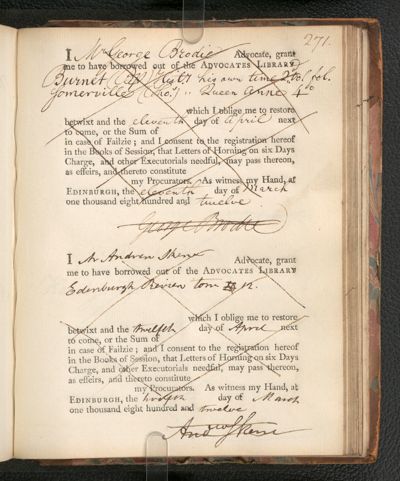 271.
I Mr George Brodie Advocate, grant
me to have borrowed out of the ADVOCATES LIBRARY
Burnet (Bp) Hist: his own time 2. vol fol.
Somerville (Tho.) " Queen Anne 4to
which I oblige me to restore
betwixt and the eleventh day of April next
to come, or the Sum of
in case of Failzie; and I consent to the registration hereof
in the Books of Session, that Letters of Horning on six Days
Charge, and other Executorials needful, may pass thereon,
as effeirs, and thereto constitute
my Procurators. As witness my Hand, at
EDINBURGH, the eleventh day of March
one thousand eight hundred and twelve
George Brodie
I Mr Andrew Skene Advocate, grant
me to have borrowed out of the ADVOCATES LIBRARY
Edinburgh Review tom 12.
which I oblige me to restore
betwixt and the twelfth day of April next
to come, or the Sum of
in case of Failzie; and I consent to the registration hereof
in the Books of Session, that Letters of Horning on six Days
Charge, and other Executorials needful, may pass thereon,
as effeirs, and thereto constitute
my Procurators. As witness my Hand, at
EDINBURGH, the twelfth day of March
one thousand eight hundred and twelve
Andrew Skene